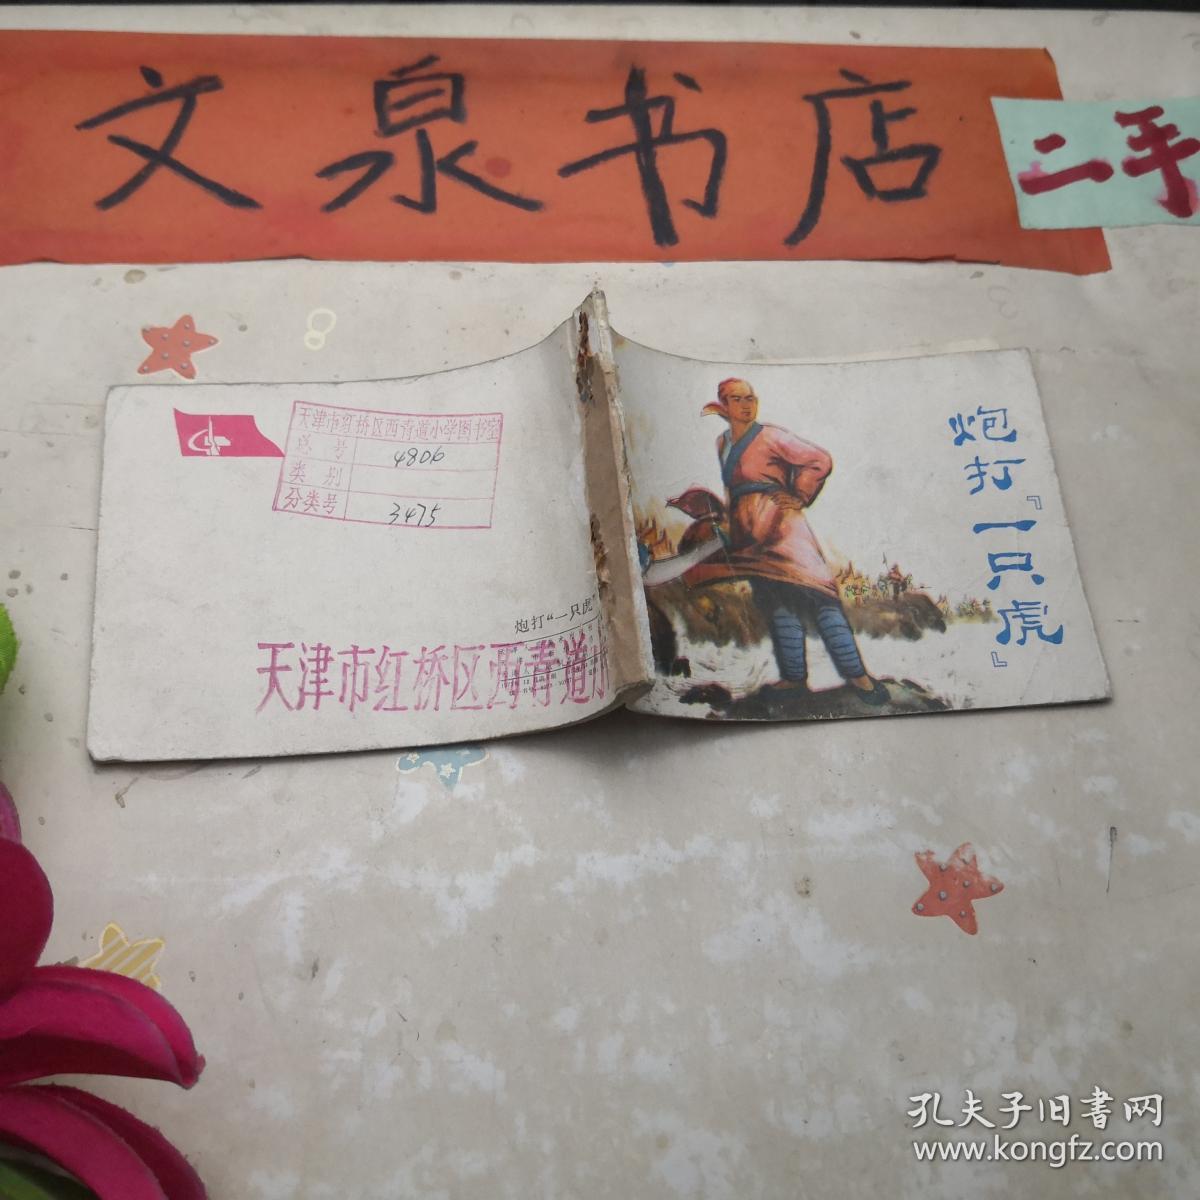 文泉书店
二手
天津市红桥区西青道小学图书室
总号 4806
类别
分类号 3475
炮打“一只虎”
天津市红桥区西青道小
炮打『一只虎』
孔夫子旧書网
www.kongfz.com